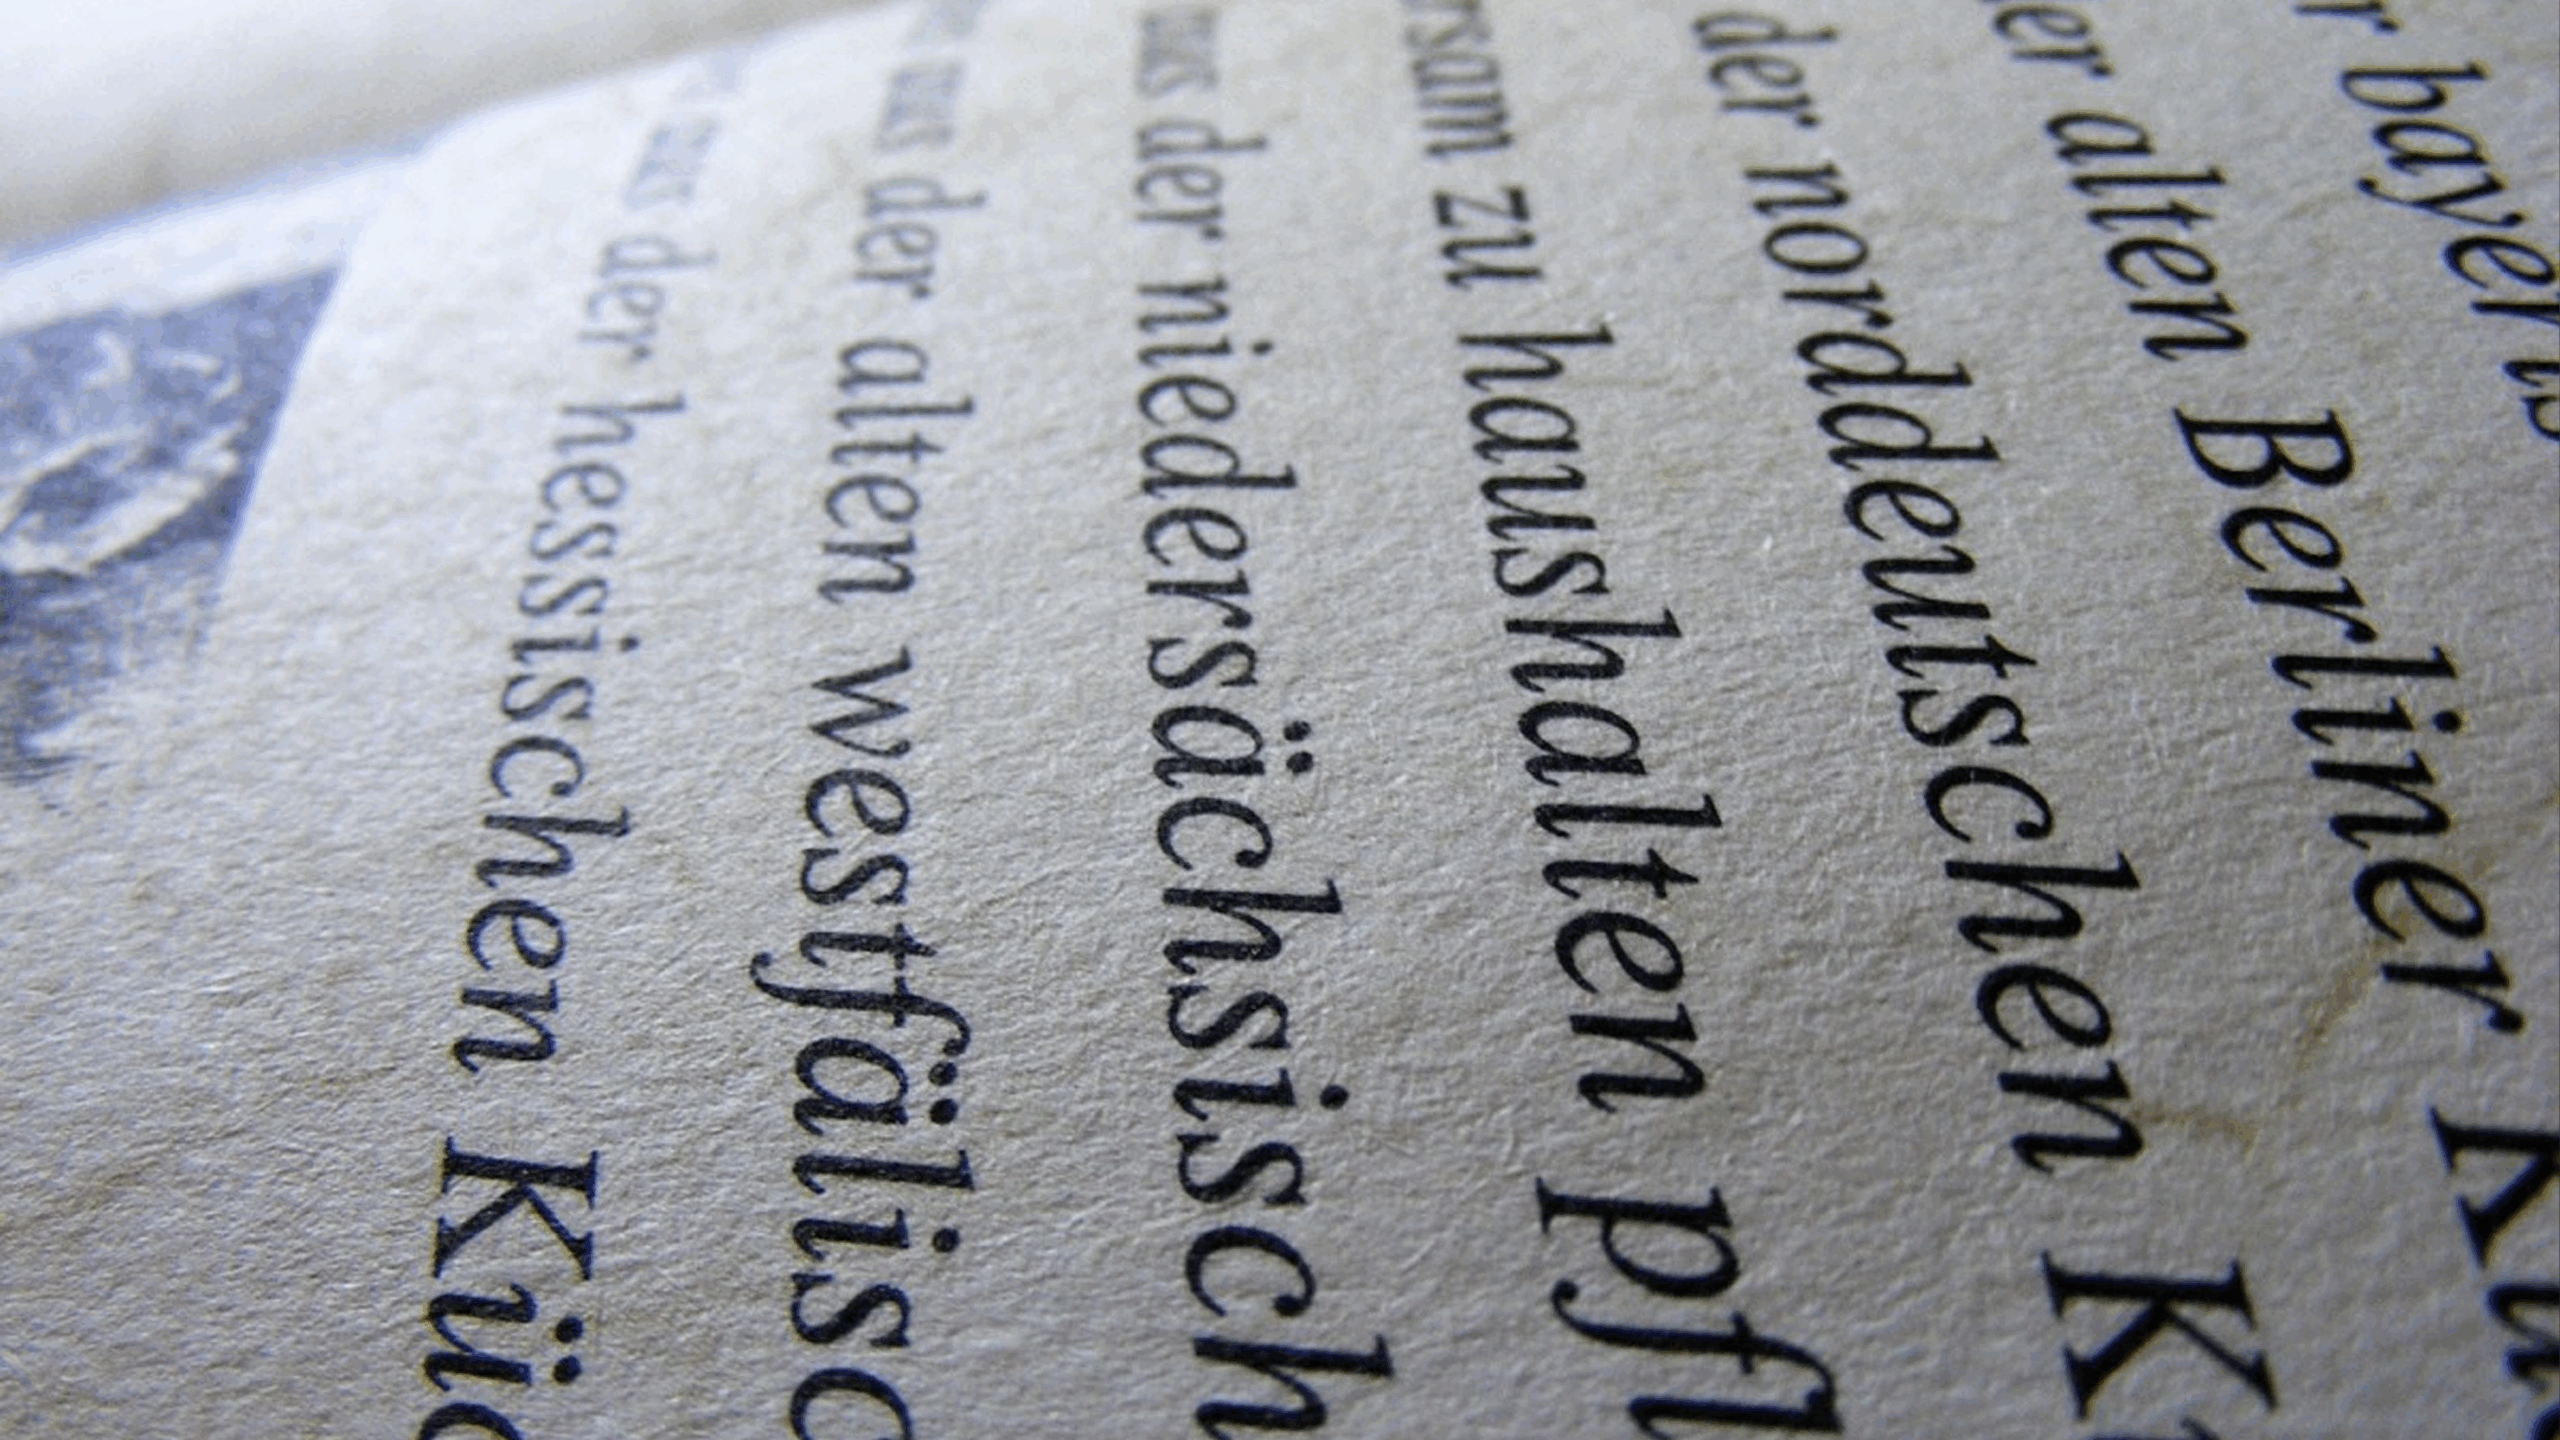 r bayeris
er alten Berliner Kü
der norddeutschen K
rsam zu haushalten pfl
aus der niedersächsisch
aus der alten westfälisc
aus der hessischen Küc